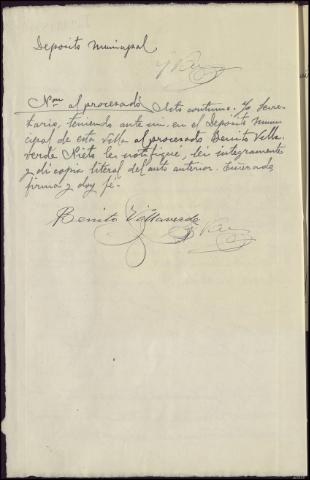 Deposito Municipal
Non al procesado. Acto continuo. Yo Secre-
tario, teniendo ante mi en el Deposito Muni-
cipal de esta Villa al procesado Benito Villa-
verde Nieto le notifiqué, lei integramente
y di copia literal del auto anterior. Enterado
firma y doy fé.
Benito Villaverde